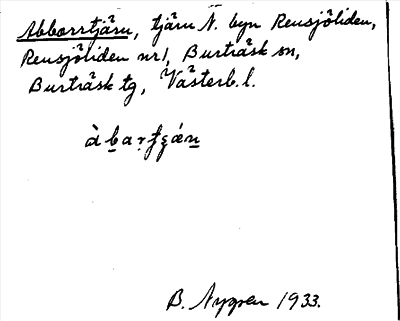 Abborrtjärn, tjärn N. byn Rensjöliden,
Rensjöliden nr 1, Burträsk sn,
Burträsk tg, Västerb. l.
B. Nygren 1933.